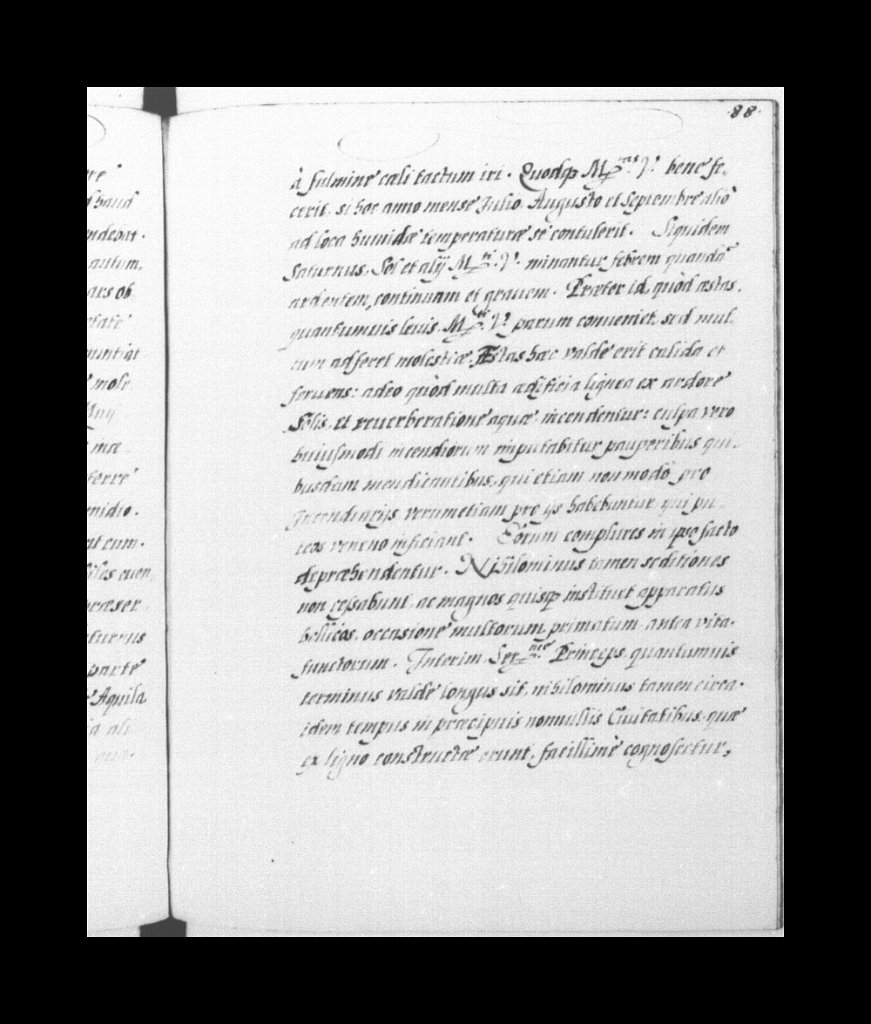 .88.
à fulmine cæli tactum iri. Quodq; M.tas V.a bene fe-
cerit, si hoc anno mense Julio, Augusto et Septembre aliò
ad loca humidæ temperaturæ se contulerit. Siquidem
Saturnus, Sol et alij M.ti V.æ minantur febrem quandã
ardentem, continuam et grauem. Præter id, quòd æstas,
quantumuis leuis, M.ti V.æ parum conueniet, sed mul-
tum adferet molestiæ. Æstas hæc valde erit calida et
feruens: adeo quòd multa ædificia lignea ex ardore
Solis, et reuerberatione aquæ incendentur: culpa vero
huiusmodi incendiorum imputabitur pauperibus qui-
busdam mendicantibus, qui etiam non modò pro
Incendiarijs verumetiam pro ijs habebuntur, qui pu-
teos veneno inficiant. Eorum complures in ipso facto
depræhendentur. Nihilominus tamen seditiones
non cessabunt, ac magnos quisq; instituet apparatus
bellicos, occasione multorum primatum antea vita
functorum. Interim Ser.me Princeps quantumuis
terminus valde longus sit, nihilominus tamen circa
idem tempus in præcipuis nonnullis Ciuitatibus, quæ
ex ligno constructæ erunt, facillimè cognoscetur,
d haud
autum,
ars ob
mole
ferre
midio.
præser
turnus
parte
Aquila